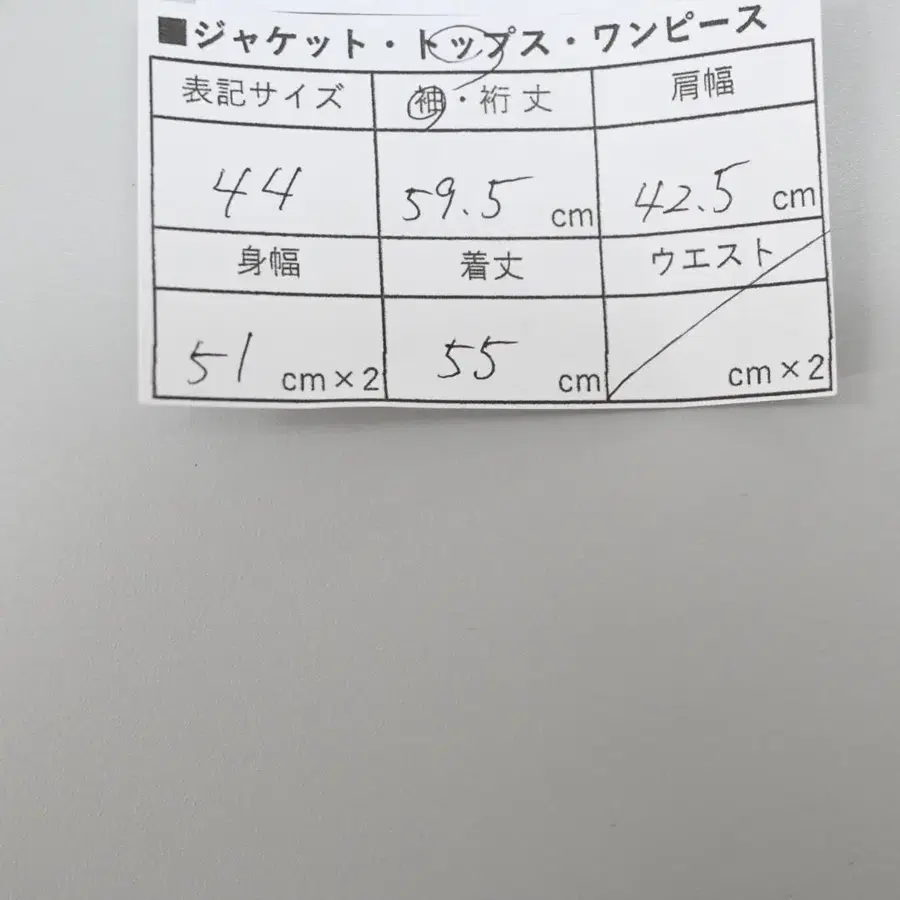 ■ジャケット・トップス・ワンピース
表記サイズ 袖・裄丈 肩幅
44 59.5 cm 42.5 cm
身幅 着丈 ウエスト
51 cm×2 55 cm cm×2